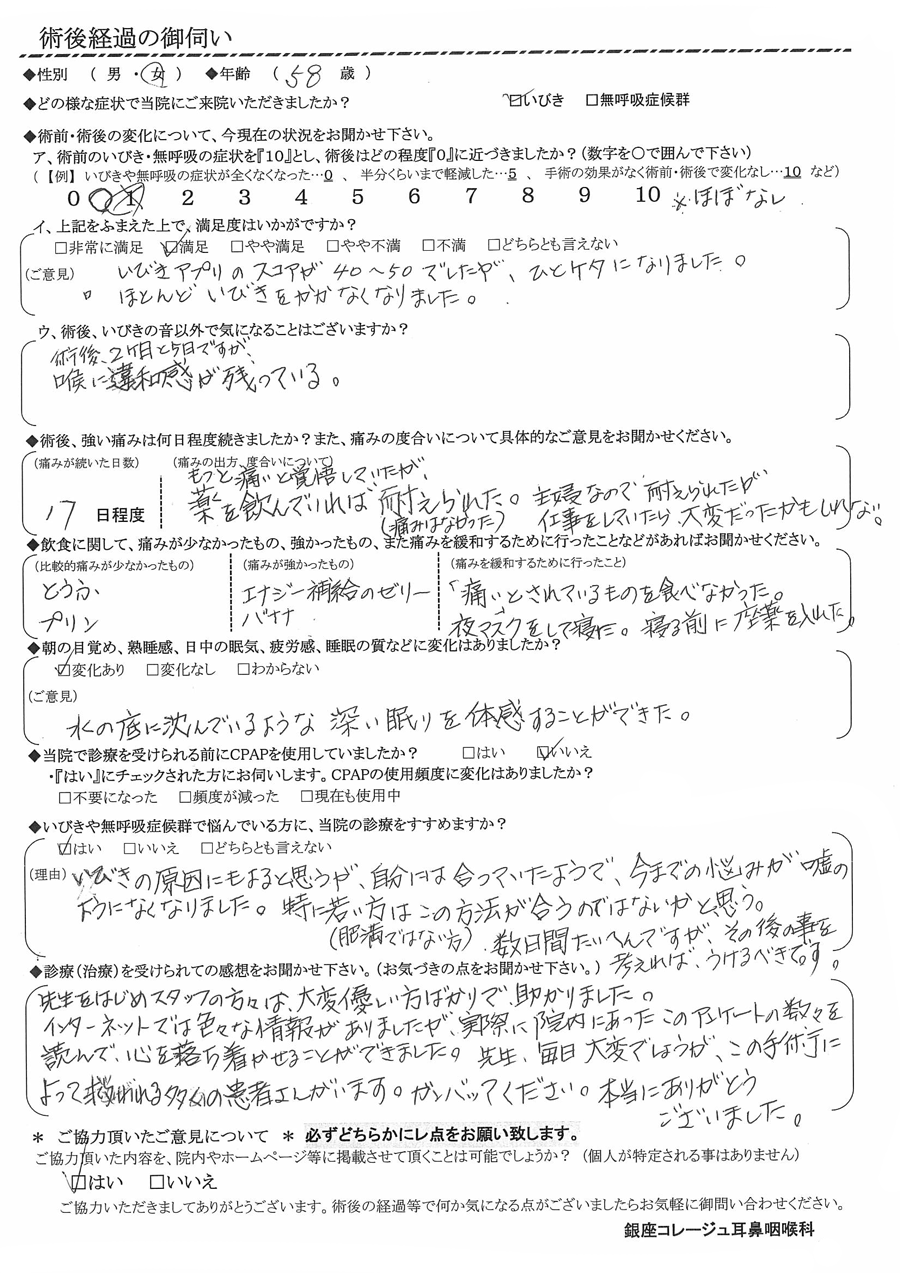 術後経過の御伺い
◆性別 （ 男 ・ 女 ） ◆年齢 （ 58 歳 ）
◆どの様な症状で当院にご来院いただきましたか？ ☑いびき □無呼吸症候群
◆術前・術後の変化について、今現在の状況をお聞かせ下さい。
ア、術前のいびき・無呼吸の症状を『10』とし、術後はどの程度『0』に近づきましたか？（数字を○で囲んで下さい）
（【例】 いびきや無呼吸の症状が全くなくなった…0 、 半分くらいまで軽減した…5 、 手術の効果がなく術前・術後で変化なし…10 など）
0 1 2 3 4 5 6 7 8 9 10 ※ほぼなし
イ、上記をふまえた上で、満足度はいかがですか？
□非常に満足 ☑満足 □やや満足 □やや不満 □不満 □どちらとも言えない
（ご意見） いびきアプリのスコアが 40〜50 でしたが、ひとケタになりました。
ほとんど いびきをかかなくなりました。
ウ、術後、いびきの音以外で気になることはございますか？
術後、2ヶ月と5日ですが、
喉に違和感が残っている。
◆術後、強い痛みは何日程度続きましたか？また、痛みの度合いについて具体的なご意見をお聞かせください。
（痛みが続いた日数） （痛みの出方、度合いについて）
もっと痛いと覚悟していたが、
薬を飲んでいれば耐えられた。 主婦なので耐えられたが
17 日程度 （痛みはなかった） 仕事をしていたら、大変だったかもしれない。
◆飲食に関して、痛みが少なかったもの、強かったもの、また痛みを緩和するために行ったことなどがあればお聞かせください。
（比較的痛みが少なかったもの） （痛みが強かったもの） （痛みを緩和するために行ったこと）
とうふ エナジー補給のゼリー 「痛い」とされているものを食べなかった。
プリン バナナ 夜マスクをして寝た。寝る前に座薬を入れた。
◆朝の目覚め、熟睡感、日中の眠気、疲労感、睡眠の質などに変化はありましたか？
☑変化あり □変化なし □わからない
（ご意見）
水の底に沈んでいるような 深い眠りを体感することができた。
◆当院で診療を受けられる前にCPAPを使用していましたか？ □はい ☑いいえ
・『はい』にチェックされた方にお伺いします。CPAPの使用頻度に変化はありましたか？
□不要になった □頻度が減った □現在も使用中
◆いびきや無呼吸症候群で悩んでいる方に、当院の診療をすすめますか？
☑はい □いいえ □どちらとも言えない
（理由） いびきの原因にもよると思うが、自分には合っていたようで、今までの悩みが嘘の
ようになくなりました。特に若い方はこの方法が合うのではないかと思う。
（肥満ではない方） 数日間たいへんですが、その後の事を
考えれば、うけるべきです。
◆診療（治療）を受けられての感想をお聞かせ下さい。（お気づきの点をお聞かせ下さい。）
先生をはじめスタッフの方々は、大変優しい方ばかりで、助かりました。
インターネットでは色々な情報がありましたが、実際に院内にあったこのアンケートの数々を
読んで、心を落ち着かせることができました。先生、毎日大変でしょうが、この手術に
よって救われる多くの患者さんがいます。ガンバッてください。本当にありがとう
ございました。
＊ ご協力頂いたご意見について ＊ 必ずどちらかにレ点をお願い致します。
ご協力頂いた内容を、院内やホームページ等に掲載させて頂くことは可能でしょうか？（個人が特定される事はありません）
☑はい □いいえ
ご協力いただきましてありがとうございます。術後の経過等で何か気になる点がございましたらお気軽に御問い合わせください。
銀座コレージュ耳鼻咽喉科